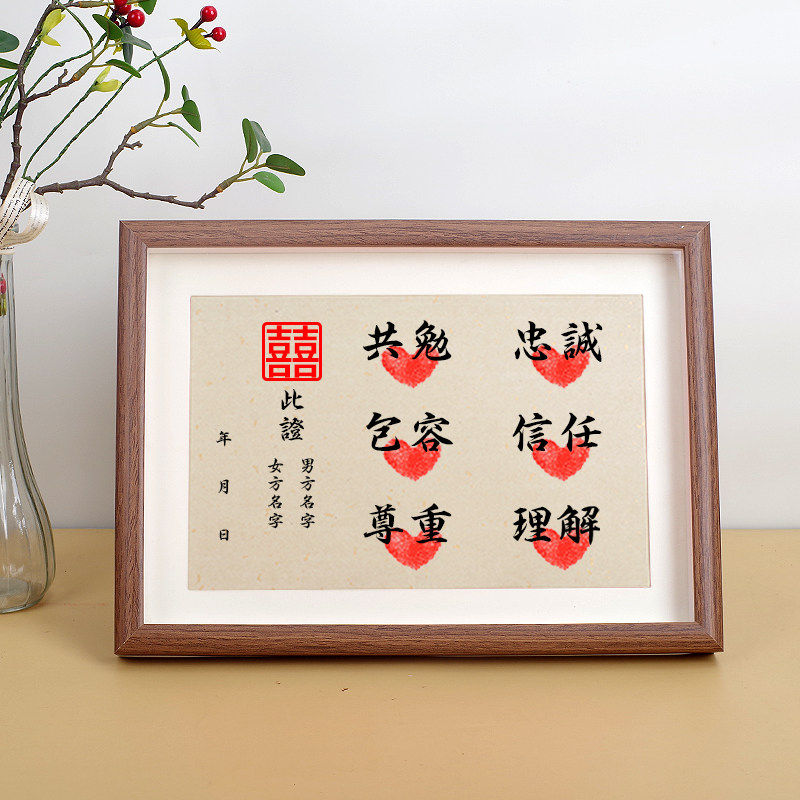 忠誠
信任
理解
共勉
包容
尊重
囍
此證
男方名字
女方名字
年 月 日